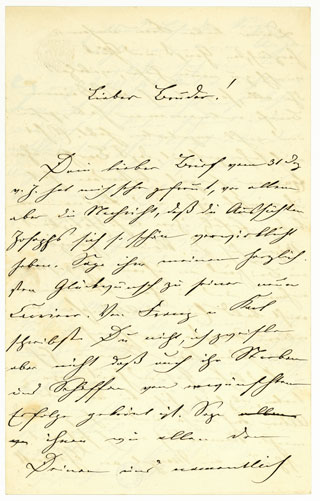 Lieber Bruder!
Dein lieber Brief vom 31 Dz
v. J. hat mich sehr gefreut, vor allem
aber die Nachricht, daß die Aussichten
Josephs sich so schön verwirklicht
haben. Sage ihm meinen herzlich-
sten Glückwunsch zu seiner neuen
Carriere. Von Franz u Karl
schreibst Du nicht, ich zweifle
aber nicht daß auch ihr Streben
und Schaffen von erwünschtem
Erfolge gekrönt ist. Sage allen
ihnen wie allen den
Deinen und namentlich